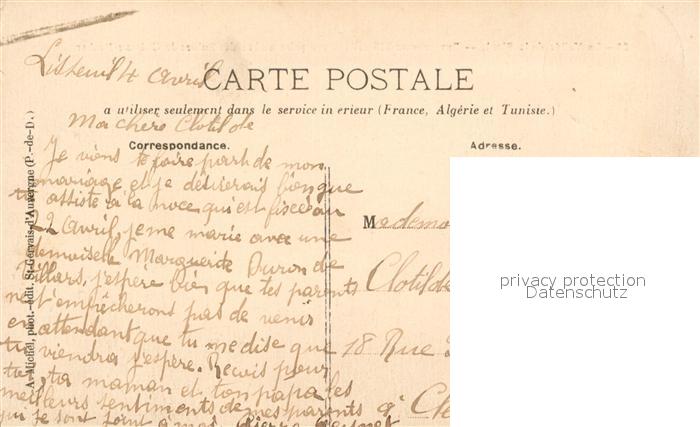 Listenil 4 avril
CARTE POSTALE
a utiliser seulement dans le service in erieur (France, Algérie et Tunisie.)
Ma chère Clotilde
Correspondance.
Adresse.
Je viens te faire part de mon
mariage et je désirerais bien que
tu assiste a la noce qui est fixée au
22 avril, je me marie avec une
demoiselle Marguerite Duron de
Villars, j'espère bien que tes parents
n t'empêcheront pas de venir
en attendant que tu me dise que
tu viendra j'espère. Recois pour
toi, ta maman et ton papa les
meilleurs sentiments de mes parents
qui se sont joint à moi. Pierre
Mademo
Clotilde
18 Rue
à Cle
A. Michel, phot.-édit. St-Gervais-d'Auvergne (P.-de-D.)
privacy protection
Datenschutz